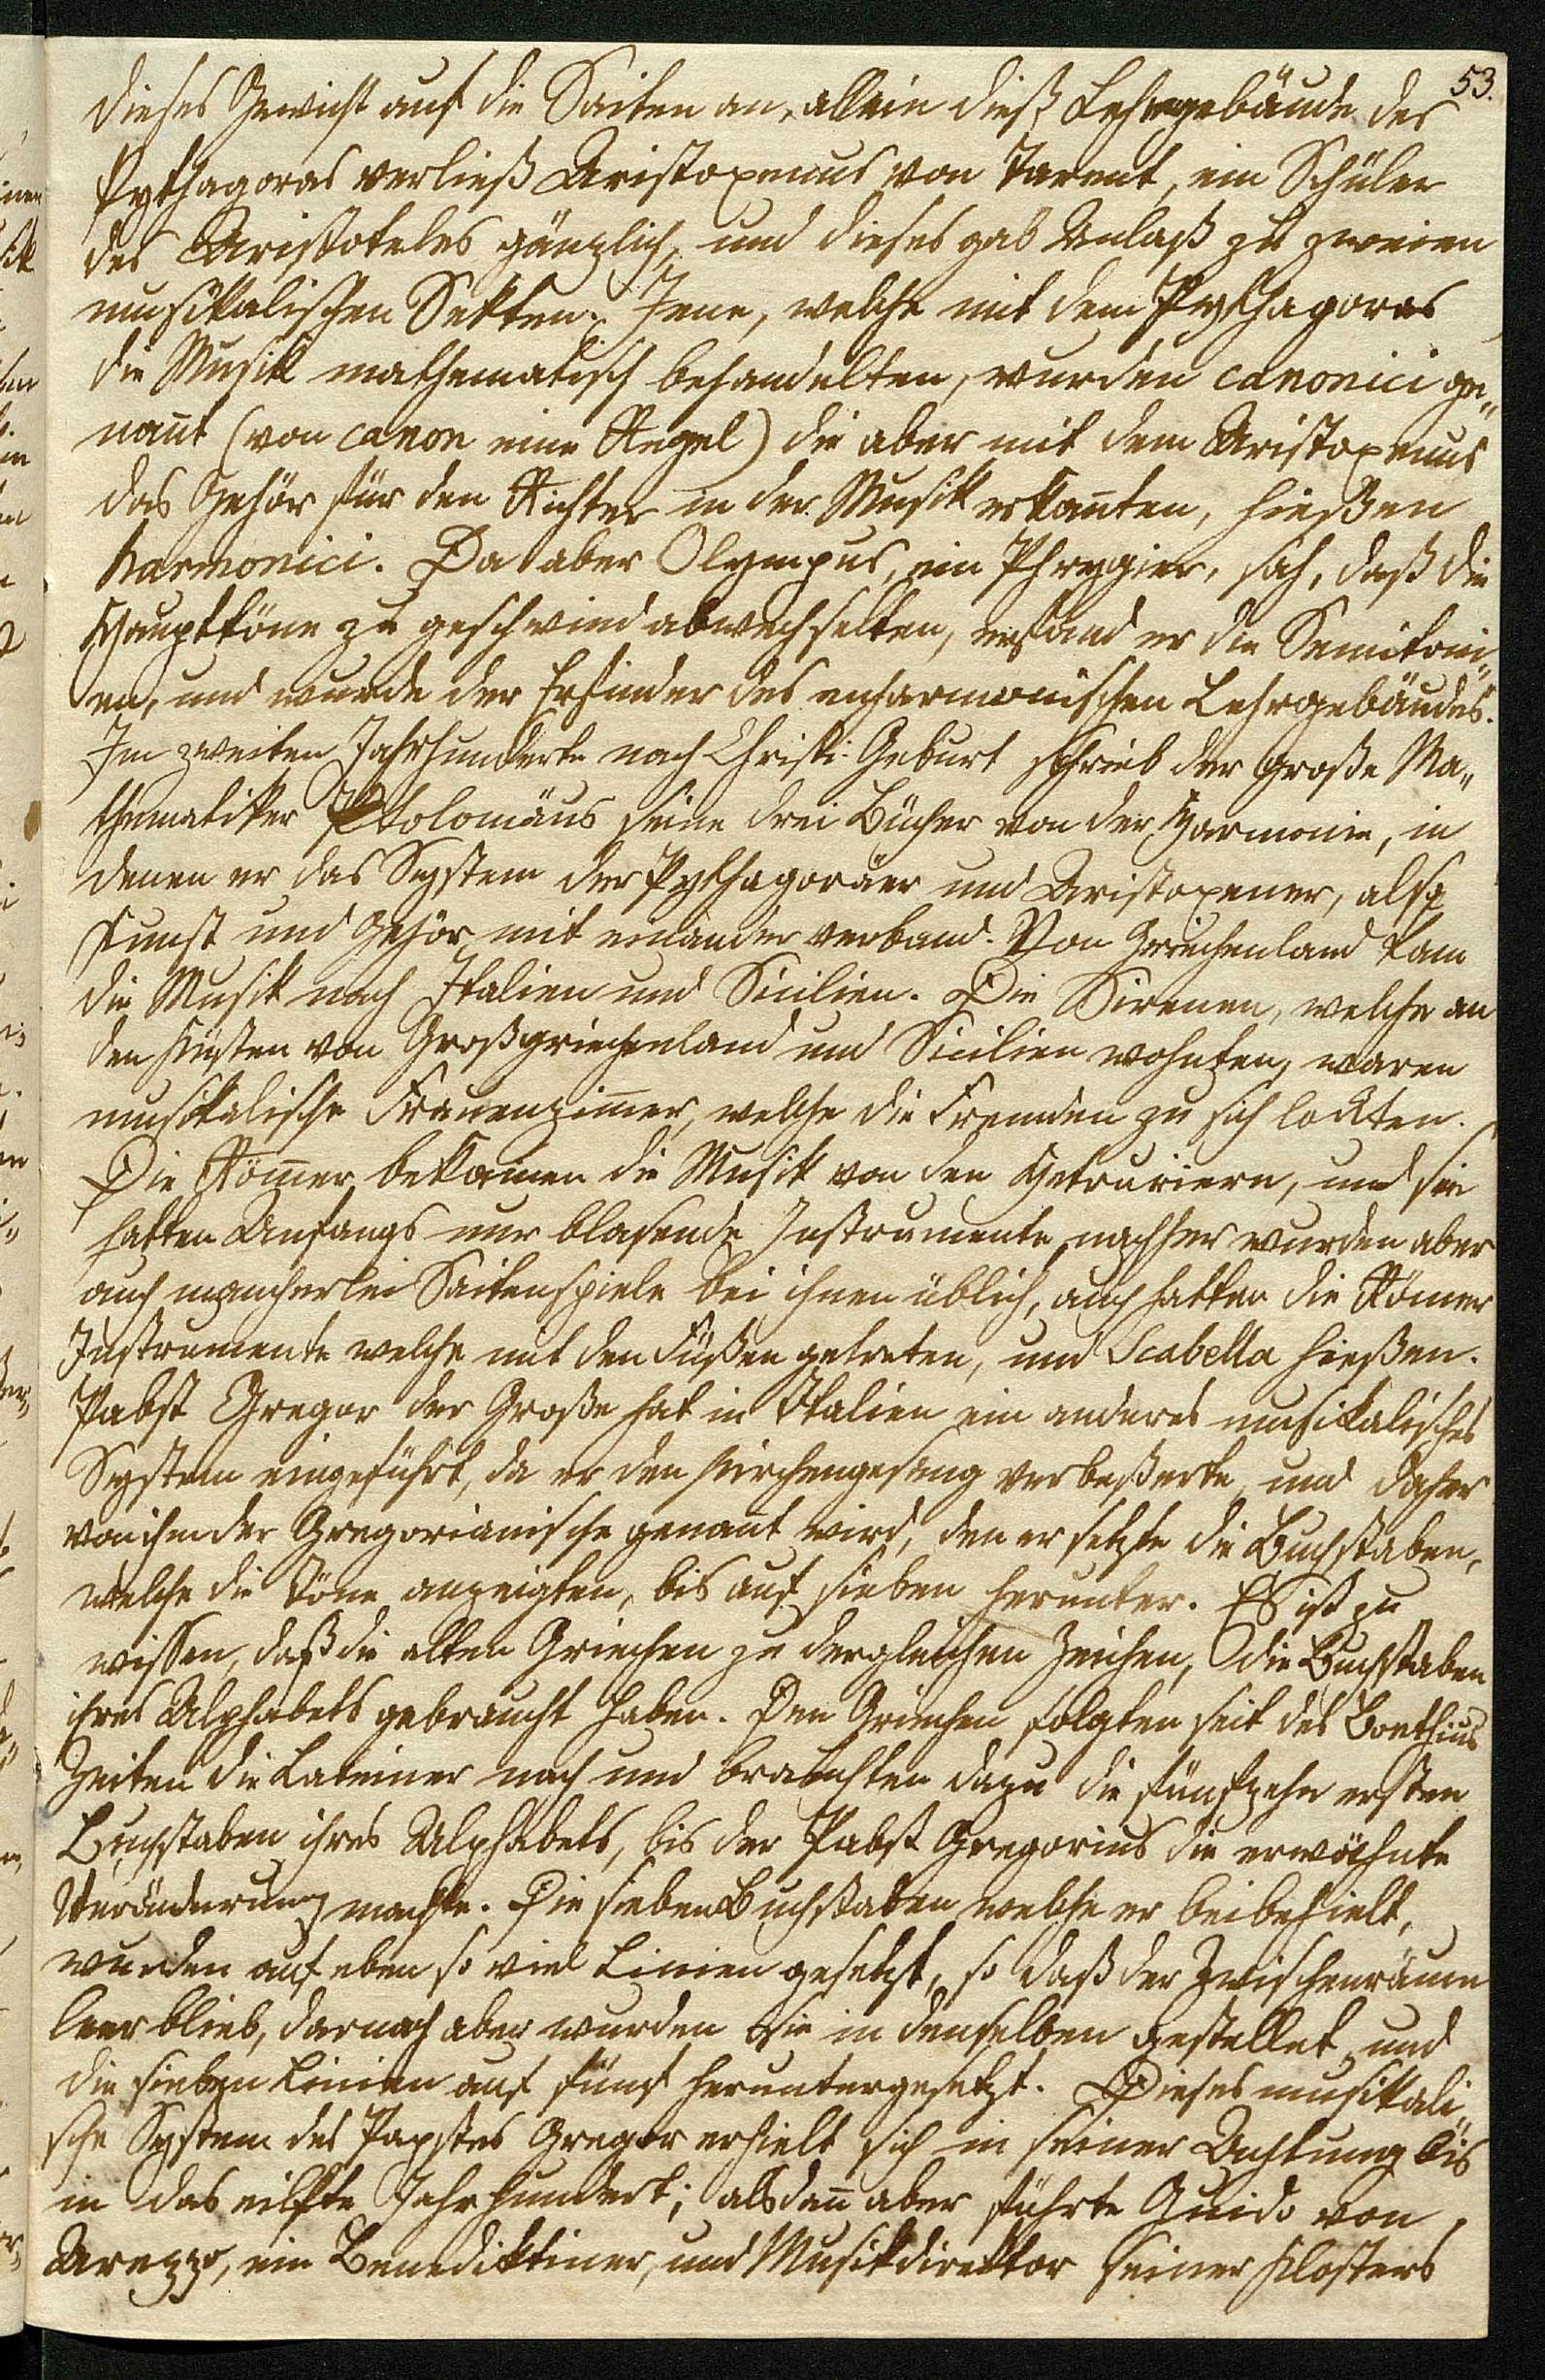 53.
dieses Gewicht auf die Saiten an, allein dieß Lehrgebäude des
Pythagoras verließ Aristoxenus von Tarent, ein Schüler
des Aristoteles gänzlich, und dieses gab Anlaß zu zweien
musikalischen Sekten. Jene, welche mit dem Pythagoras
die Musik mathematisch behandelten, wurden canonici ge„
nan̄t (von canon eine Regel) die aber mit dem Aristoxenus
das Gehör für den Richter in der Musik erkan̄ten, hießen
harmonici. Da aber Olympus, ein Phrygier, sah, daß die
Haupttöne zu geschwind abwechselten, erfand er die Semitoni„
en, und wurde der Erfinder des enharmonischen Lehrgebäudes.
Im zweiten Jahrhunderte nach Christi Geburt schrieb der große Ma„
thematiker Ptolomäus seine drei Bücher von der Harmonie, in
denen er das System der Pythagoräer und Aristoxener, also
Kunst und Gehör mit einander verband. Von Griechenland kam
die Musik nach Italien und Sicilien. Die Sirenen, welche an
den Küsten von Großgriechenland und Sicilien wohnten, waren
musikalische Frauenzim̄er, welche die Fremden zu sich lockten.
Die Röm̄er bekamen die Musik von den Hetruriern, und sie
hatten Anfangs nur blasende Instrumente, nachher wurden aber
auch mancherlei Saitenspiele bei ihnen üblich, auch hatten die Römer
Instrumente welche mit den Füßen getreten, und Scabella hießen.
Pabst Gregor der Große hat in Italien ein anderes musikalisches
System eingeführt, da er den Kirchengesang verbeßerte, und daher
von ihm der Gregorianische genan̄t wird, den er setzte die Buchstaben,
welche die Töne anzeigten, bis auf sieben herunter. Es ist zu
wissen, daß die alten Griechen zu dergleichen Zeichen, die Buchstaben
ihres Alphabets gebraucht haben. Den Griechen folgten seit des Boethius
Zeiten die Lateiner nach und brauchten dazu die fünfzehn ersten
Buchstaben ihres Alphabets, bis der Pabst Gregorius die erwähnte
Veränderung machte. Die sieben Buchstaben welche er beibehielt,
wurden auf eben so viel Linien gesetzt, so daß der Zwischenraum
leer blieb, darnach aber wurden sie in denselben gestellet, und
die sieben Linien auf fünf heruntergesetzt. Dieses musikali„
sche System des Papstes Gregor erhielt sich in seiner Achtung bis
in das eilfte Jahrhundert; alsdan̄ aber führte Guido von
Arezzo, ein Benediktiner, und Musikdirektor seiner Klosters